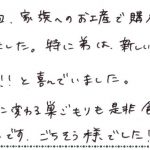 、家族へのお土産で購
した。特に弟は、新しい
!!と喜んでいました。
に変わる巣ごもりも是非食
です、ごちそう様でした!!